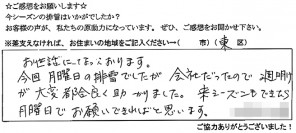 ☆ご感想をお願いします☆
今シーズンの排雪はいかがでしたか?
お客様の声が、私たちの原動力になっています。ぜひ、ご感想をお聞かせ下さい。
※差支えなければ、お住まいの地域をご記入ください→( 市)( 東 区)
お世話になっております。
今回 月曜日の排雪でしたが 会社だったので 週明け
が大変都合良く助かりました。来シーズンもできたら
月曜日でお願いできればと思います。
ご協力ありがとうございました!